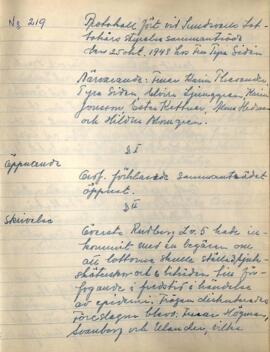 No 219
Protokoll fört vid Sundsvalls Lot-
takårs styrelsesammanträde
den 25 okt. 1948 hos Fru Tyra Sidén
Närvarande: Fruar Karin Thelander
Tyra Sidén Ljunggren, Karin
Jonsson, Ester Kettner, Hedman
och Hildur Blomgren.
§ I
Öppnande
Ordf. förklarade sammanträdet
öppnat.
§ II
Skrivelse
Överste Rudberg Lv. 5 hade in-
kommit med en begäran om
att lottorna skulle ställa sjuk-
sköterskor och biträden till för-
fogande i fredstid i händelse
av epidemi. Frågan diskuterades
Föreslagna blevo: Fruar Högman,
Svanborg och Ulander, vilka